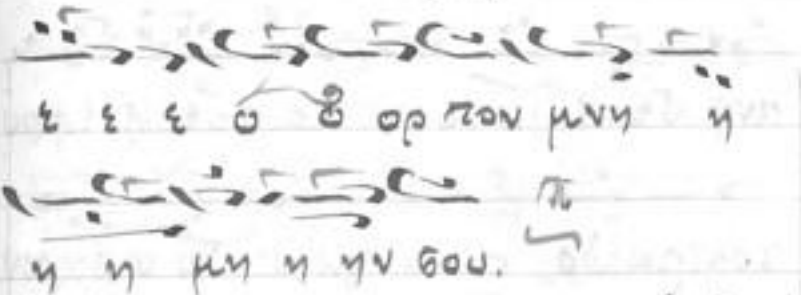 ε ε ε ο ο ορ τον μνη η
η η μνη η ην σου. π